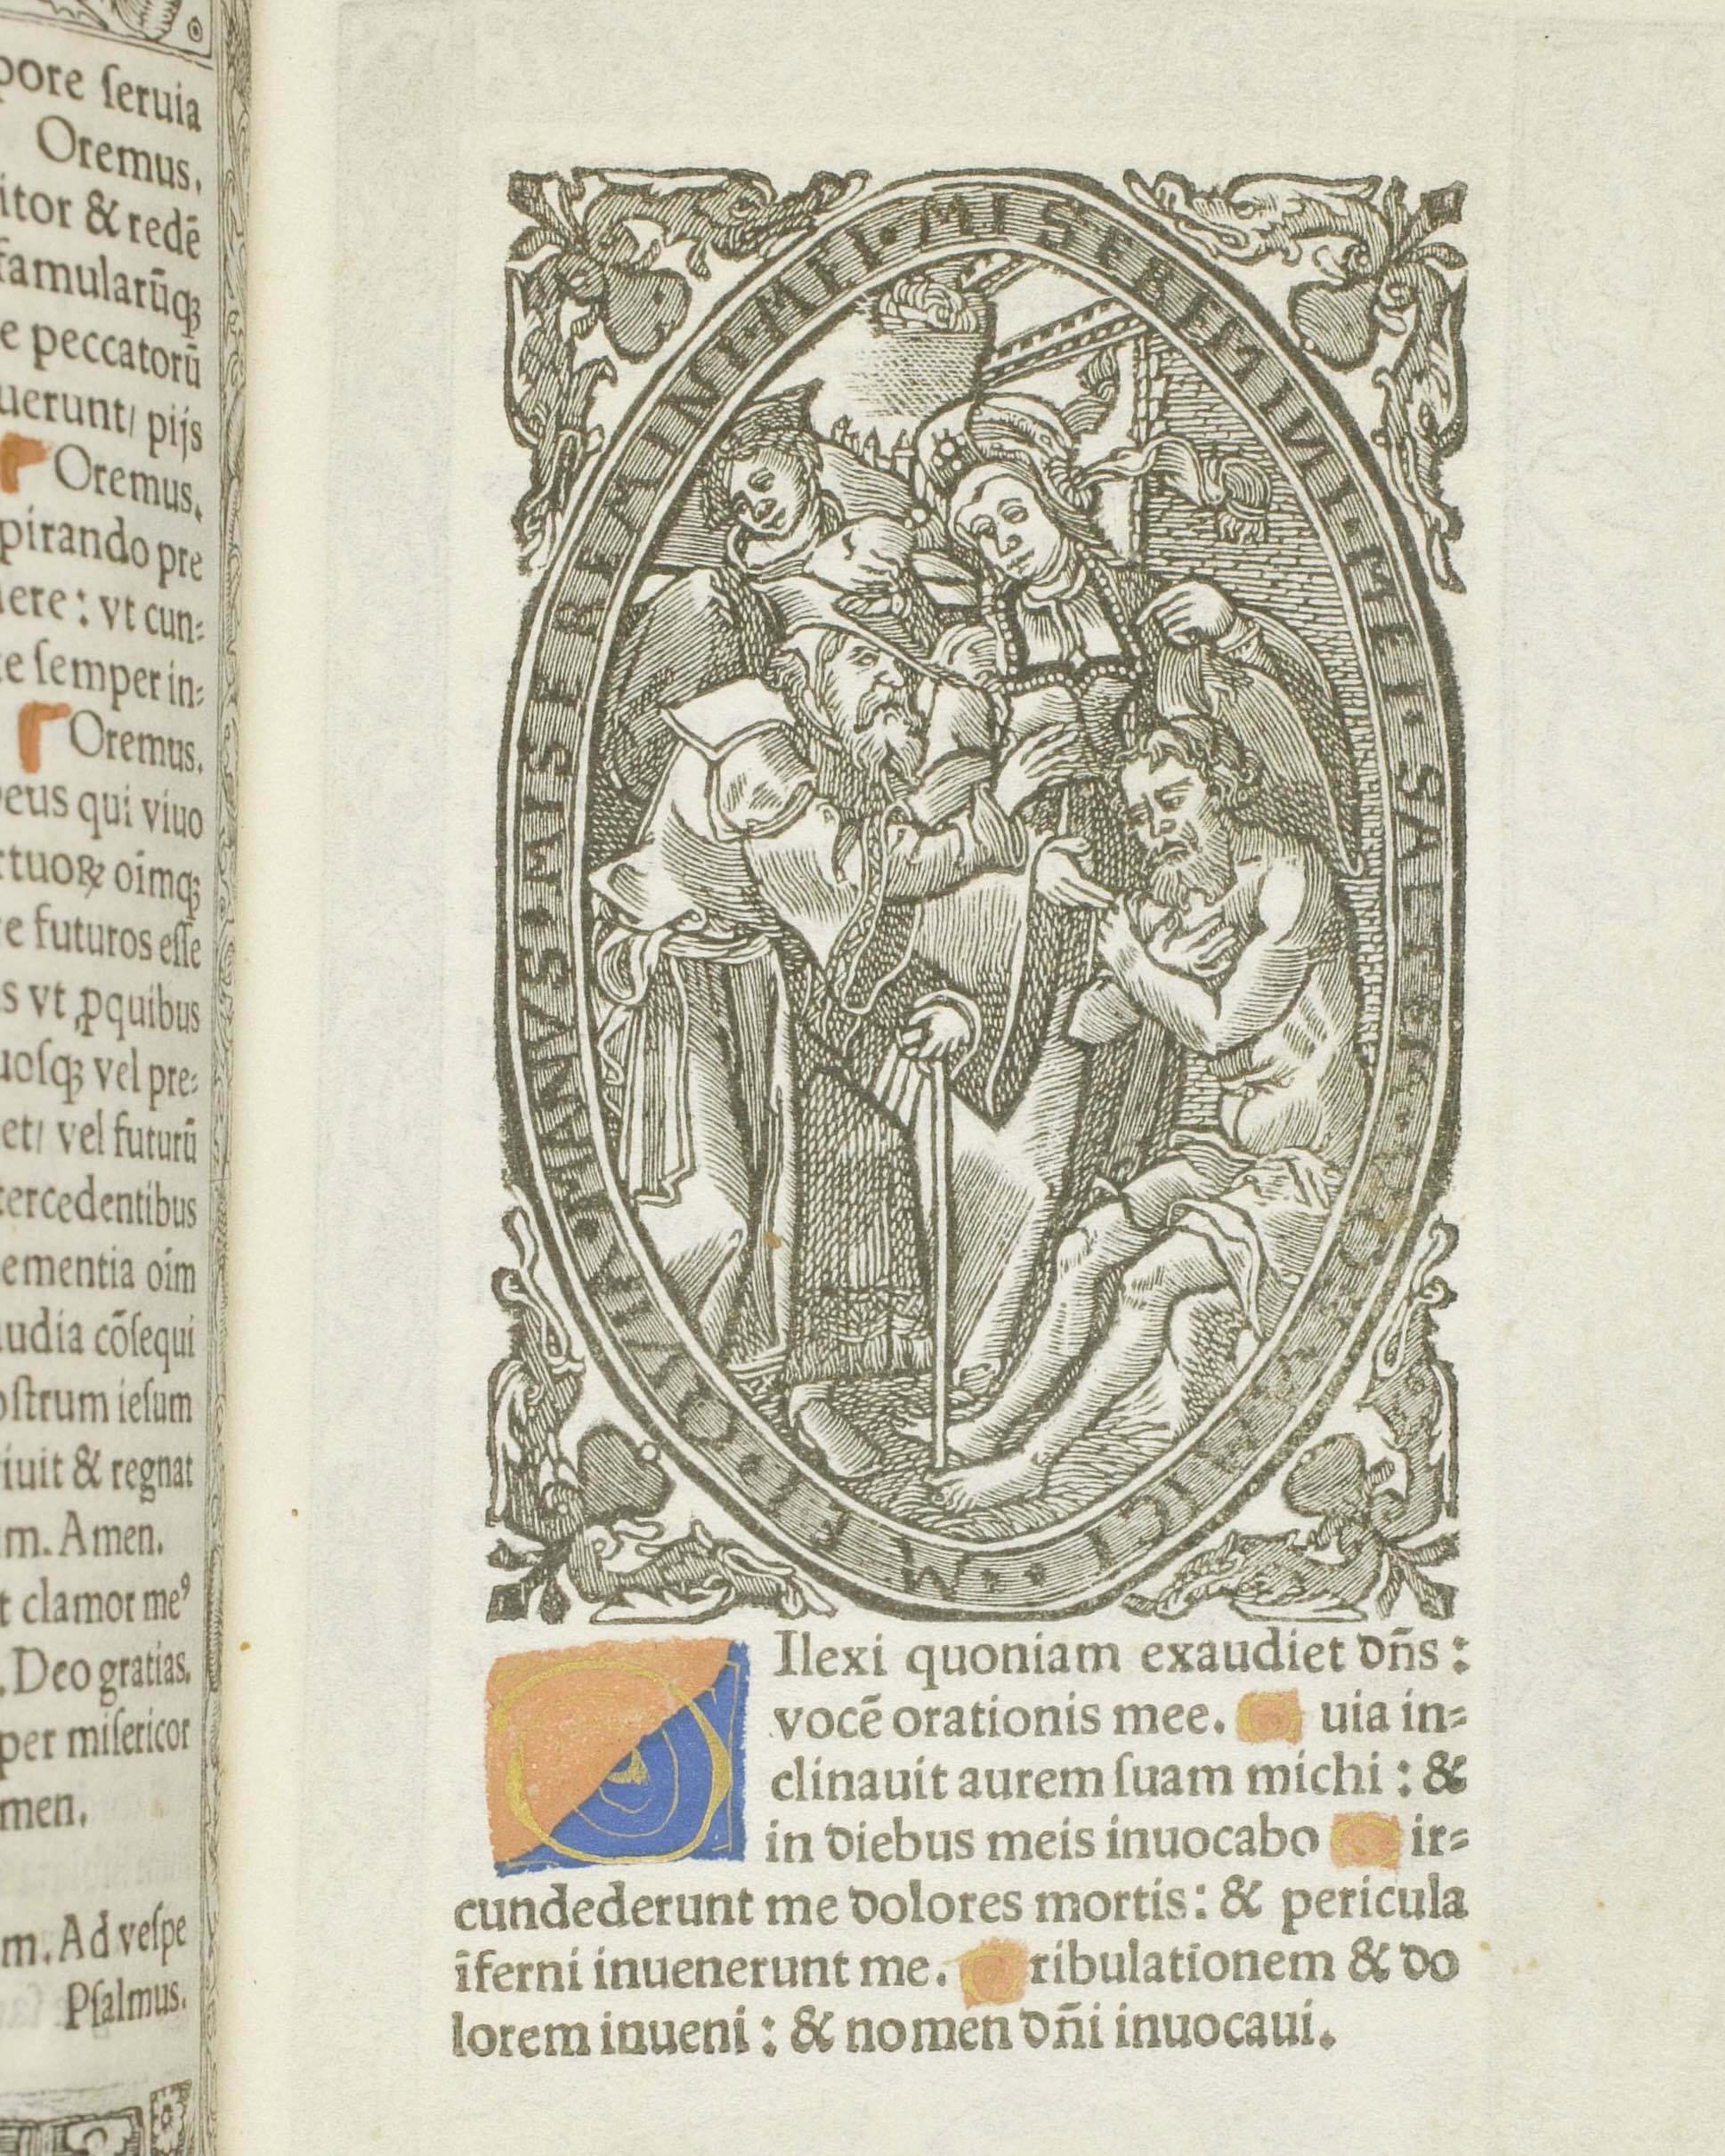 pore ſeruia
Oremus.
itor & redē
famularūqꝫ
e peccatorū
uerunt/ pijs
Oremus.
pirando pre
ere : vt cun⸗
te ſemper in⸗
Oremus.
eus qui viuo
rtuoꝝ oimqꝫ
re futuros eſſe
s vt ꝓquibus
uoſqꝫ vel pre⸗
et/ vel futurū
tercedentibus
ementia oim
udia cōſequi
oſtrum ieſum
iuit & regnat
m. Amen.
t clamor meꝰ
. Deo gratias.
per miſericor
men.
m. Ad veſpe
Pſalmus.
MISEREMINI · MEI · MISEREMINI · MEI · SALTEM · VOS · AMICI · MEI · MANVS ·
DIlexi quoniam exaudiet dn̄s :
vocē orationis mee. uia in⸗
clinauit aurem ſuam michi : &
in diebus meis inuocabo ir⸗
cundederunt me dolores mortis : & pericula
īferni inuenerunt me. ribulationem & do
lorem inueni : & nomen dn̄i inuocaui.